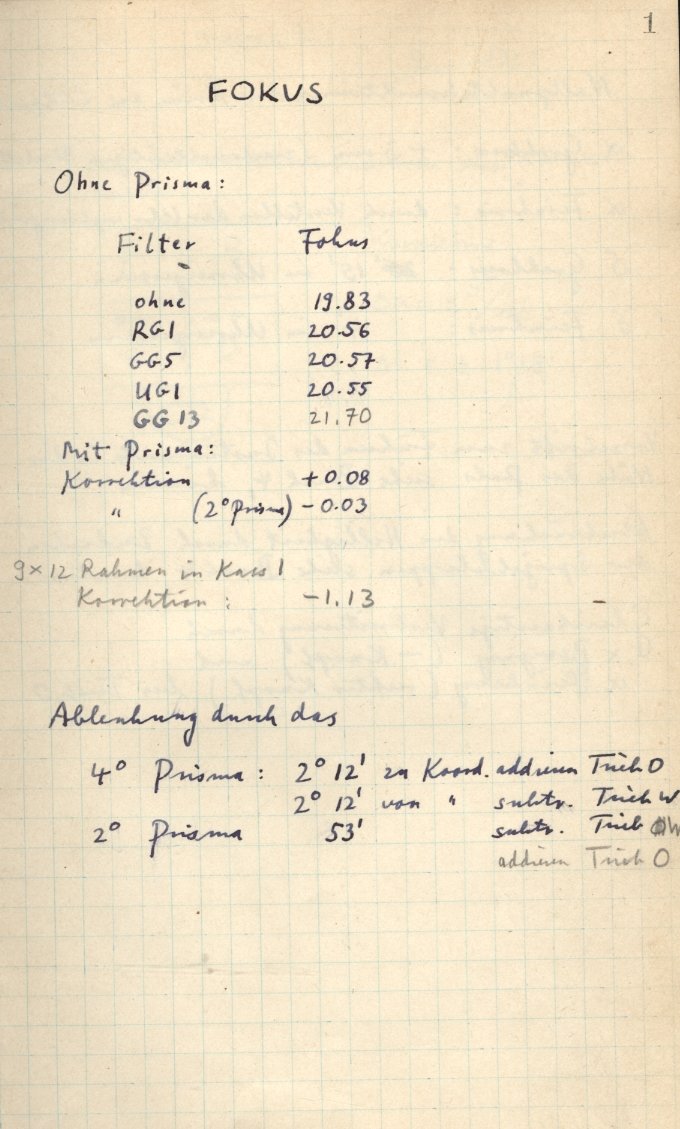 1
FOKUS
Ohne Prisma:
Filter Fokus
ohne 19.83
RG1 20.56
GG5 20.57
UG1 20.55
GG 13 21.70
Mit Prisma:
Korrektion +0.08
" (2° Prisma) -0.03
9×12 Rahmen in Kass 1
Korrektion: -1.13
Ablenkung durch das
4° Prisma: 2° 12' zu Koord. addieren Trieb O
2° 12' von " subtr. Trieb W
2° Prisma 53' subtr. Trieb W
addieren Trieb O